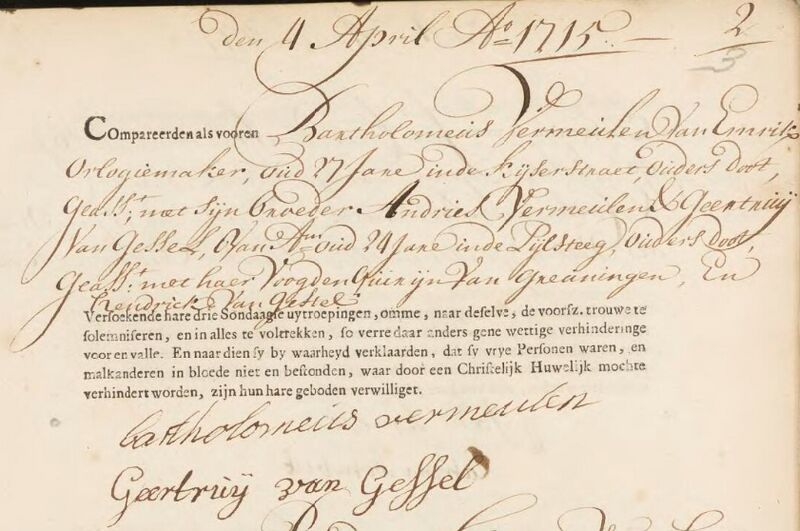 den 4 April Ao 1715 — 2
3
Compareerden als vooren Bartholomeus Vermeulen Van Emrik
Orlogiemaker, oud 27 Jare inde Kijserstraet, Ouders doot,
Geasst. met sijn broeder Andries Vermeulen & Geertruij
Van Gessel, Van Am oud 24 Jare inde Pijlsteeg, Ouders doot,
Geasst. met haer Voogden Quirijn Van Greuningen, En
Hendrick Van Gessel
Versoekende hare drie Sondaagse uytroepingen, omme, naar deselve, de voorsz. trouwe te
solemniseren, en in alles te voltrekken, so verre daar anders gene wettige verhinderinge
voor en valle. En naar dien sy by waarheyd verklaarden, dat sy vrye Personen waren, en
malkanderen in bloede niet en bestonden, waar door een Christelijk Huwelijk mochte
verhindert worden, zijn hun hare geboden verwilliget.
bartholomeus vermeulen
Geertruij van Gessel